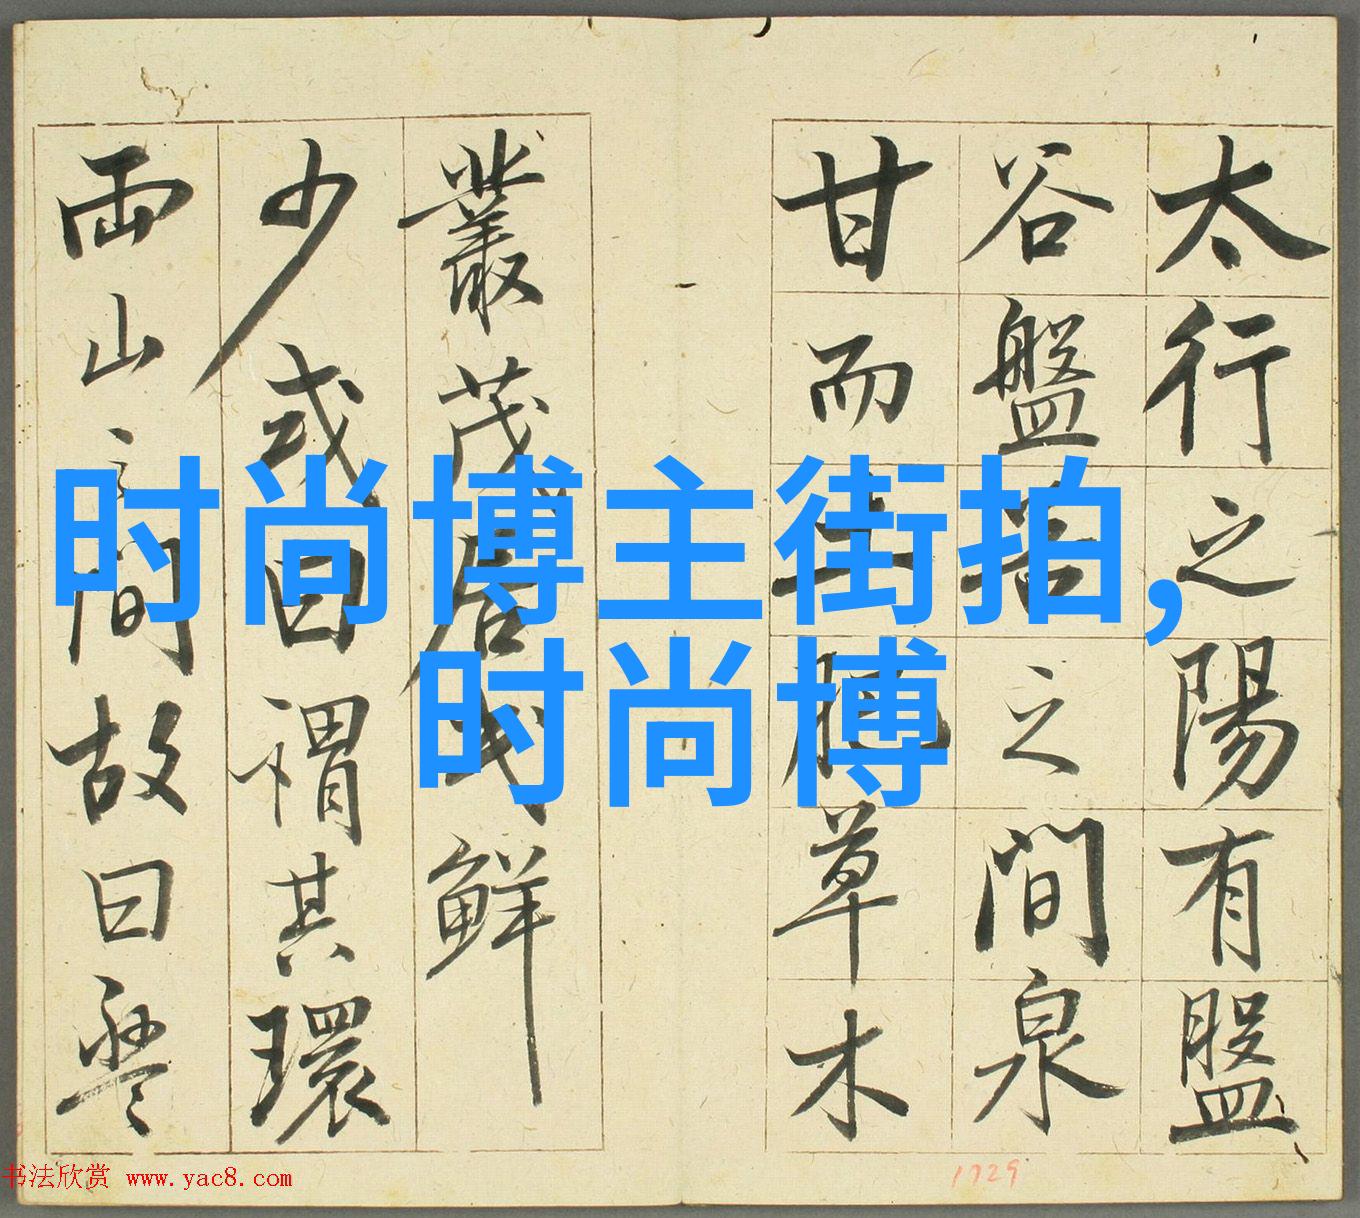 太行之陽有盤
谷盤谷之間泉
甘而土肥草木
叢茂居民鮮
少或曰謂其環
兩山之間故曰盤
时尚博主街拍,
时尚博
书法欣赏 www.yac8.com
1729